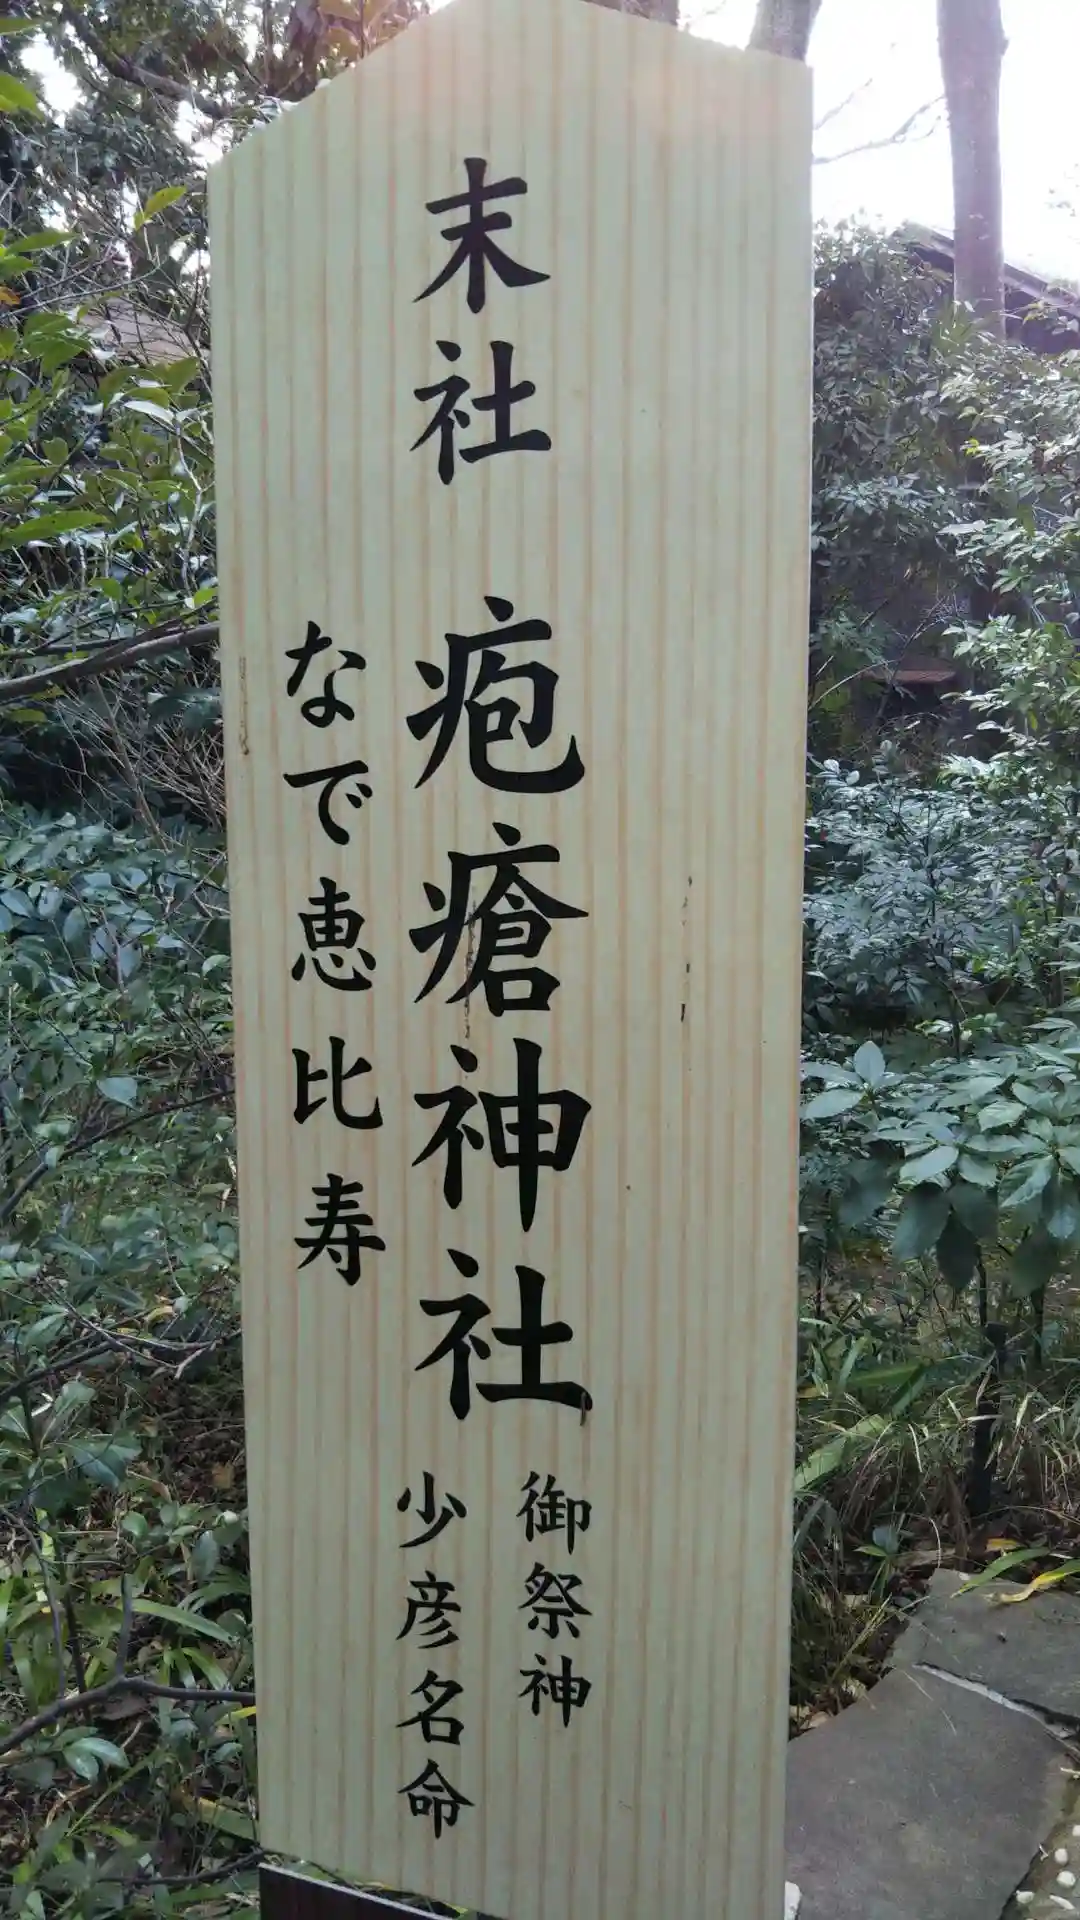 末社 疱瘡神社
御祭神
少彦名命
なで恵比寿